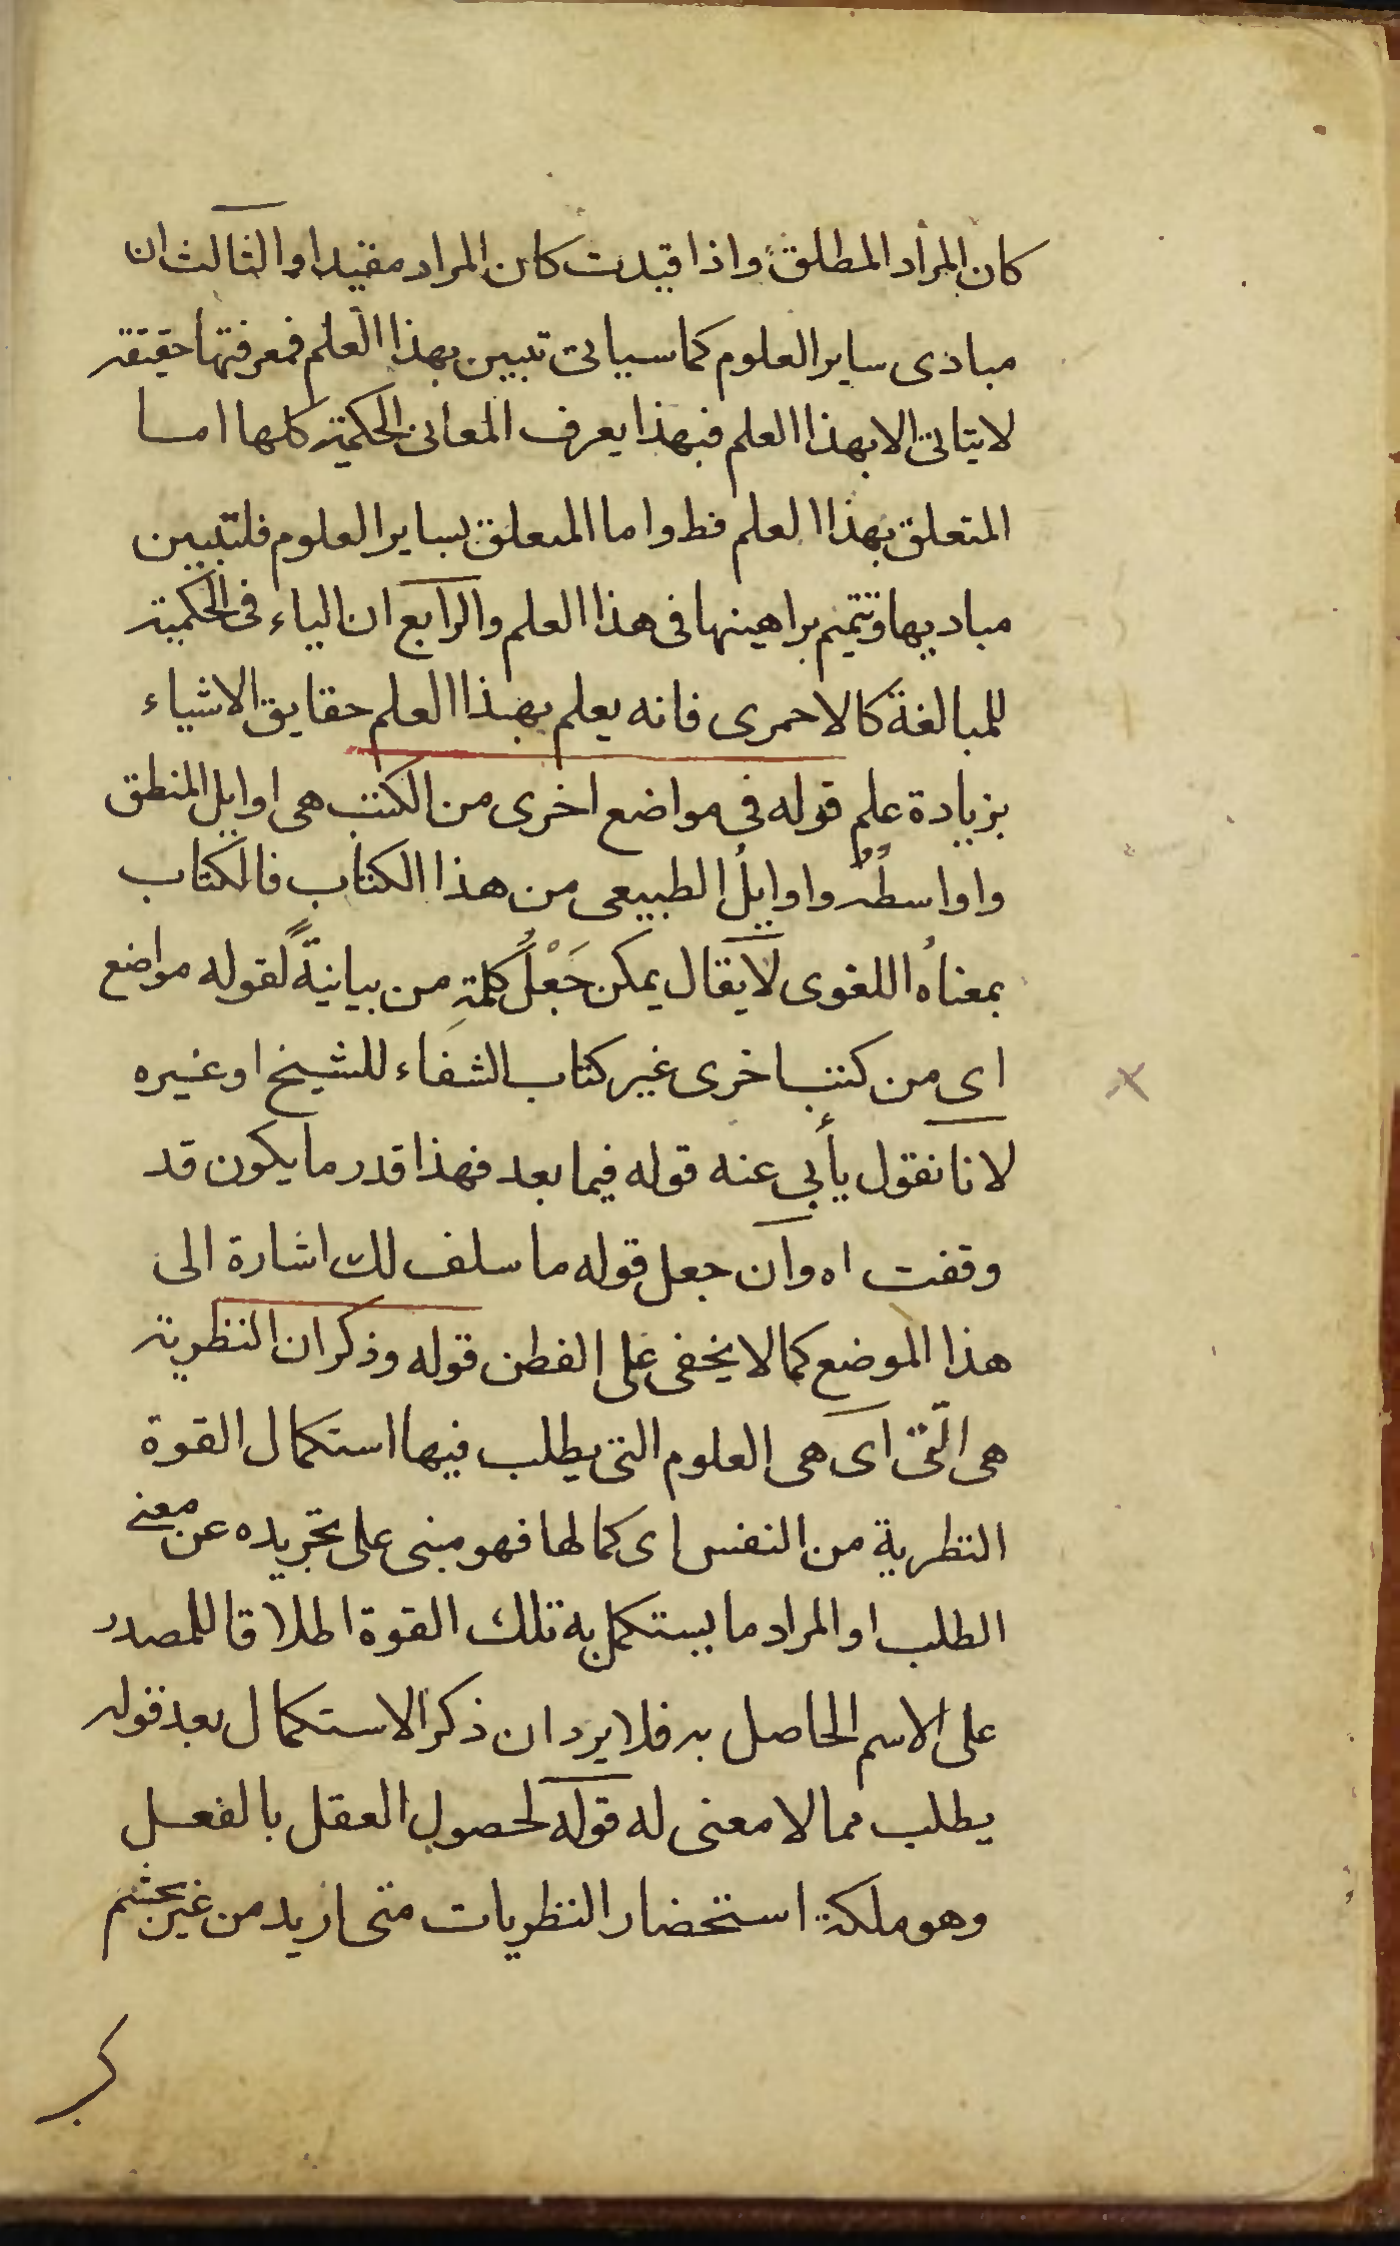 كان المراد المطلق واذا قيدت كان المراد مقيدا والثالث ان
مبادى ساير العلوم كما سياتى تبيين بهذا العلم فمعرفتها حقيقة
لايتاتى الا بهذا العلم فبهذا يعرف المعانى الحكمية كلها اما
المتعلق بهذا العلم فط واما المتعلق بساير العلوم فلتبيين
مباديها وتتميم براهينها فى هذا العلم والرابع ان الياء فى الحكمية
للمبالغة كالاحمرى فانه يعلم بهذا العلم حقايق الاشياء
بزيادة علم قوله فى مواضع اخرى من الكتب هى اوايل المنطق
واواسطُه واوايلُ الطبيعى من هذا الكتاب فالكتاب
بمعناهُ اللغوى لايقال يمكن جَعْلُ كلمةِ من بيانيةً لقوله مواضع
اى من كتب اخرى غير كتاب الشفاء للشيخ او غيره
لانا نقول يأبى عنه قوله فيما بعد فهذا قدر ما يكون قد
وقفت اه وان جعل قوله ما سلف لك اشارة الى
هذا الموضع كما لا يخفى على الفطن قوله وذكر ان النظرية
هى الّتى اى هى العلوم التى يطلب فيها استكمال القوة
النظرية من النفس اى كمالها فهو مبنى على تجريده عن معنى
الطلب او المراد ما يستكمل به تلك القوة اطلاقا للمصدر
على الاسم الحاصل به فلا يرد ان ذكر الاستكمال بعد قوله
يطلب مما لا معنى له قوله لحصول العقل بالفعل
وهو ملكة استحضار النظريات متى اريد من غير تجشم